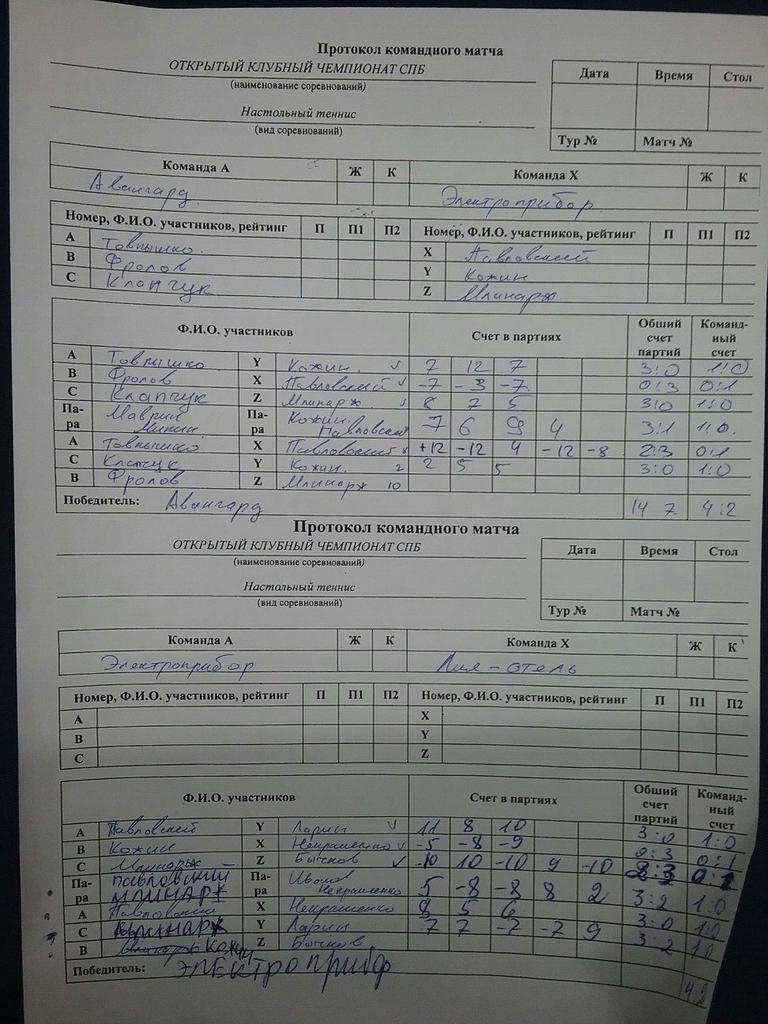 Протокол командного матча
ОТКРЫТЫЙ КЛУБНЫЙ ЧЕМПИОНАТ СПБ
(наименование соревнований)
Настольный теннис
(вид соревнований)
Дата Время Стол
Тур № Матч №
Команда А Ж К Команда Х Ж К
Авангард Электроприбор
Номер, Ф.И.О. участников, рейтинг П П1 П2 Номер, Ф.И.О. участников, рейтинг П П1 П2
А Товпышко. X Павловский
В Фролов Y Кожин
С Клапчук Z Млинарж
Ф.И.О. участников Счет в партиях Обший счет партий Команд-ный счет
А Товпышко Y Кожин. 7 12 7 3:0 1:0
В Фролов X Павловский -7 -3 -7 0:3 0:1
С Клапчук Z Млинарж 8 7 5 3:0 1:0
Па-ра Маврин Минин Па-ра Кожин Павловский -7 6 9 4 3:1 1:0.
А Товпышко X Павловский +12 -12 4 -12 -8 2:3 0:1
С Клапчук Y Кожин. 2 2 5 5 3:0 1:0
В Фролов Z Млинарж 10
Победитель: Авангард 14 7 4:2
Протокол командного матча
ОТКРЫТЫЙ КЛУБНЫЙ ЧЕМПИОНАТ СПБ
(наименование соревнований)
Настольный теннис
(вид соревнований)
Дата Время Стол
Тур № Матч №
Команда А Ж К Команда Х Ж К
Электроприбор Лия-отель
Номер, Ф.И.О. участников, рейтинг П П1 П2 Номер, Ф.И.О. участников, рейтинг П П1 П2
А X
В Y
С Z
Ф.И.О. участников Счет в партиях Обший счет партий Команд-ный счет
А Павловский Y Ларин 11 8 10 3:0 1:0
В Кожин X Некрашенко -5 -8 -9 0:3 0:1
С Млинарж Z Бычков -10 10 -10 9 -10 2:3 0:1
Па-ра Павловский Млинарж Па-ра Некрашенко 5 -8 -8 8 2 3:2 1:0
А Павловский X Некрашенко 8 5 6 3:0 1:0
С Млинарж Y Ларин 7 7 -7 -7 9 3:2 1:0
В Кожин Z Бычков
Победитель: Электроприбор 4:2